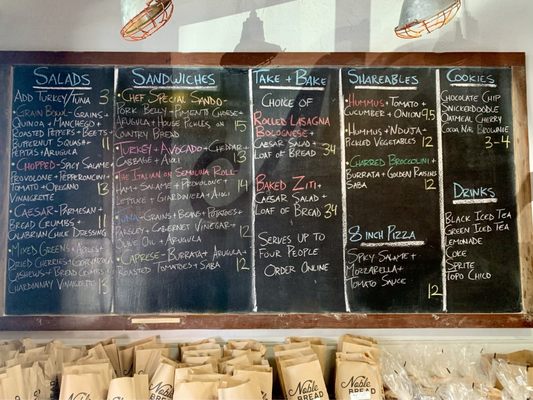 SALADS
ADD TURKEY/TUNA 3
GRAIN BOWL - GRAINS +
QUINOA + MANCHEGO +
ROASTED PEPPERS + BEETS
BUTTERNUT SQUASH + 11
PEPITAS + ARUGULA
CHOPPED - SPICY SALAME
PROVOLONE + PEPPERONCINI
TOMATO + OREGANO 13
VINAIGRETTE
CAESAR - PARMESAN
BREAD CRUMBS 11
CALABRIAN CHICK DRESSING
MIXED GREENS - APPLES
DRIED CHERRIES + GORGONZOLA
CASHEWS + BREAD CRUMBS
CHARDONNAY VINAIGRETTE 13
SANDWICHES
CHEF SPECIAL SANDO -
PORK BELLY - PIMENTO CHEESE
ARUGULA + HOUSE PICKLES ON 15
COUNTRY BREAD
TURKEY - AVOCADO + CHEDDAR +
CABBAGE + AIOLI 13
THE ITALIAN ON SEMOLINA ROLL
HAM + SALAME + PROVOLONE 14
LETTUCE + GIARDINIERA + AIOLI
TUNA - GRAINS + BEANS + POTATOES +
PARSLEY + CABERNET VINEGAR + 12
OLIVE OIL + ARUGULA
CAPRESE - BURRATA + ARUGULA +
ROASTED TOMATOES + SABA 12
TAKE + BAKE
CHOICE OF
ROLLED LASAGNA
BOLOGNESE +
CAESAR SALAD +
LOAF OF BREAD 34
BAKED ZITI +
CAESAR SALAD +
LOAF OF BREAD 34
SERVES UP TO
FOUR PEOPLE
ORDER ONLINE
SHAREABLES
HUMMUS + TOMATO +
CUCUMBER + ONION 9.5
HUMMUS + NDUJA +
PICKLED VEGETABLES 12
CHARRED BROCCOLINI +
BURRATA + GOLDEN RAISINS
SABA 12
8 INCH PIZZA
SPICY SALAME +
MOZZARELLA +
TOMATO SAUCE 12
COOKIES
CHOCOLATE CHIP
SNICKERDOODLE
OATMEAL CHERRY
COCOA NIB BROWNIE
3-4
DRINKS
BLACK ICED TEA
GREEN ICED TEA
LEMONADE
COKE
SPRITE
TOPO CHICO
Noble
BREAD
Noble
BREAD
Noble
BREAD
Noble
BREAD